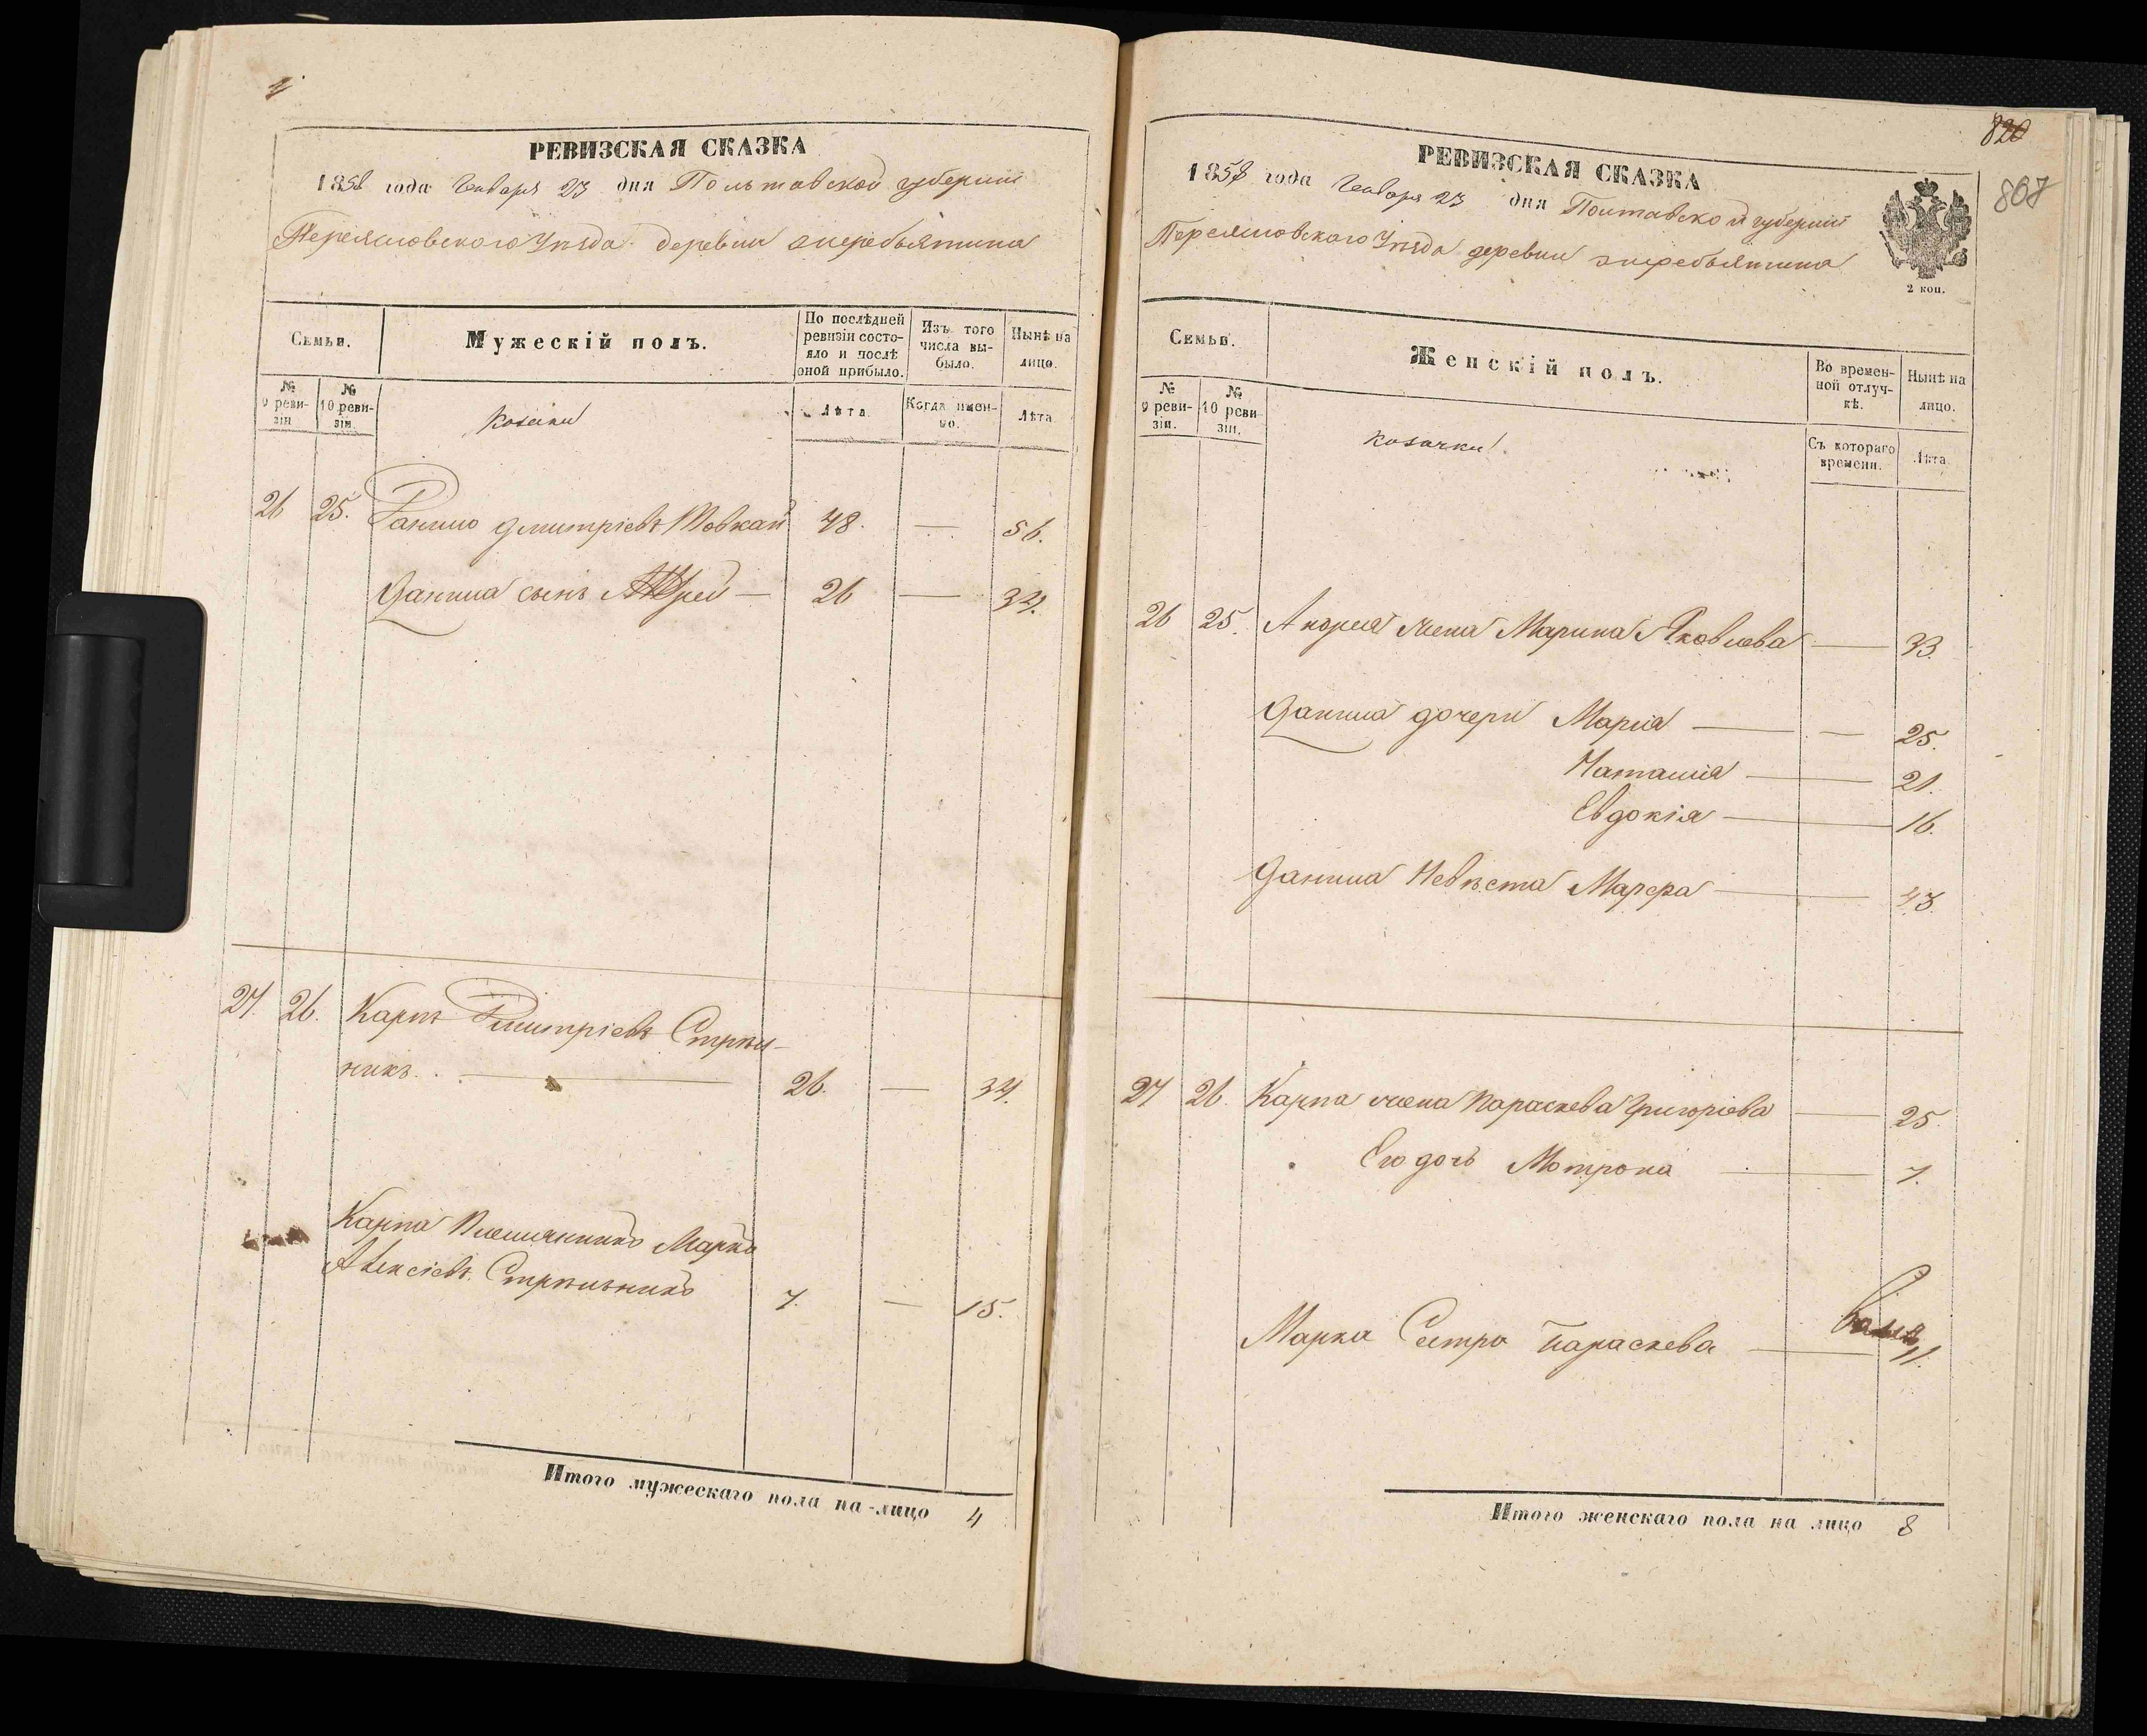 РЕВИЗСКАЯ СКАЗКА
1858 года Генваря 23 дня Польтавской губернии
Переясловского Уѣзда деревни
Семьи.
Мужескій полъ.
По послѣдней ревизіи состояло и послѣ оной прибыло.
Изъ того числа выбыло.
Нынѣ на лицо.
№ 9 ревизіи
№ 10 ревизіи.
Козаки
Лѣта
Когда именно.
Лѣта
26 25. Данило Дмитріевъ Товкай 48. — 56.
Данила сынъ — 26 — 34.
27. 26. Карпъ Дмитріевъ Стрѣль-
никъ. — 26. — 34.
Карпа Племянникъ Марко
Алексіевъ Стрѣльникъ 7. — 15.
Итого мужескаго пола на-лицо 4
820
807
РЕВИЗСКАЯ СКАЗКА
1858 года Генваря 23 дня Полтавской губернии
Переясловского Уѣзда деревни
2 коп.
Семьи.
Женскій полъ.
Во временной отлучкѣ.
Нынѣ на лицо.
№ 9 ревизіи.
№ 10 ревизіи.
козачки
Съ котораго времени.
Лѣта
26 25. Андрея жена Марина Яковлева — 33.
Данила дочери Марія — — 25.
Наталия — 21.
Евдокія — 16.
Данила Невѣста — 43.
27 26. Карпа жена Параскева Григоріева — 25
Его дочь Мотрона — 7.
Марка Сестра Параскева — 11.
Итого женскаго пола на лицо 8